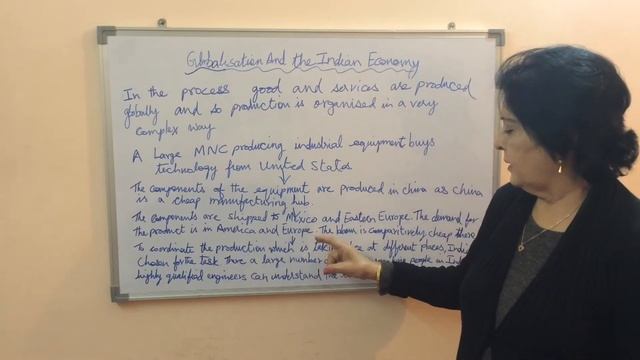 Globalisation And the Indian Economy
In the process good and sarvices are produced
globally and so production is organised in a very
complex way
A Large MNC producing industrial equipment buys
technology from United States
The components of the equipment are produced in china as china
is a cheap manufacturing hub.
The components are shipped to Mexico and Eastern Europe. The demand for
the product is in America and Europe. The is cheap there
To coordinate the production which is at different places, India
Chosen for the task there a large number people in
highly qualified engineers can understand the